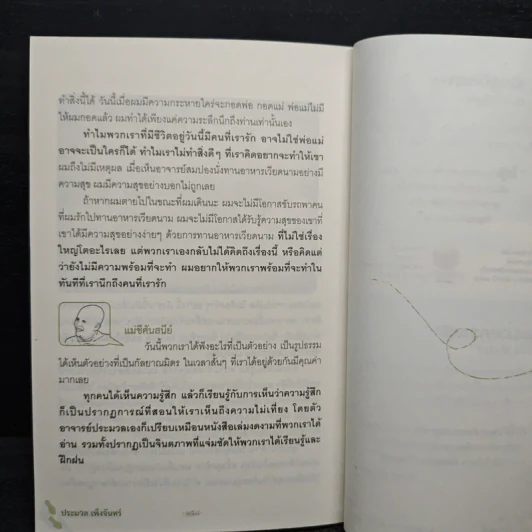 ทำสิ่งนี้ได้ วันนี้เมื่อผมมีความกระหายใคร่จะกอดพ่อ กอดแม่ พ่อแม่ไม่มี
ให้ผมกอดแล้ว ผมทำได้เพียงแค่ความระลึกนึกถึงท่านเท่านั้นเอง
ทำไมพวกเราที่มีชีวิตอยู่วันนี้มีคนที่เรารัก อาจไม่ใช่พ่อแม่
อาจจะเป็นใครก็ได้ ทำไมเราไม่ทำสิ่งดีๆ ที่เราคิดอยากจะทำให้เขา
ผมถึงไม่มีเหตุผล เมื่อเห็นอาจารย์สมปองนั่งทานอาหารเวียดนามอย่างมี
ความสุข ผมมีความสุขอย่างบอกไม่ถูกเลย
ถ้าหากผมตายไปในขณะที่ผมเดินนะ ผมจะไม่มีโอกาสขับรถพาคน
ที่ผมรักไปทานอาหารเวียดนาม ผมจะไม่มีโอกาสได้รับรู้ความสุขของเขาที่
เขาได้มีความสุขอย่างง่ายๆ ด้วยการทานอาหารเวียดนาม ที่ไม่ใช่เรื่อง
ใหญ่โตอะไรเลย แต่พวกเราเองกลับไม่ได้คิดถึงเรื่องนี้ หรือคิดแต่
ว่ายังไม่มีความพร้อมที่จะทำ ผมอยากให้พวกเราพร้อมที่จะทำใน
ทันทีที่เรานึกถึงคนที่เรารัก
แม่ชีศันสนีย์
วันนี้พวกเราได้ฟังอะไรที่เป็นตัวอย่าง เป็นรูปธรรม
ได้เห็นตัวอย่างที่เป็นกัลยาณมิตร ในเวลาสั้นๆ ที่เราได้อยู่ด้วยกันมีคุณค่า
มากเลย
ทุกคนได้เห็นความรู้สึก แล้วก็เรียนรู้กับการเห็นว่าความรู้สึก
ก็เป็นปรากฏการณ์ที่สอนให้เราเห็นถึงความไม่เที่ยง โดยตัว
อาจารย์ประมวลเองก็เปรียบเหมือนหนังสือเล่มงดงามที่พวกเราได้
อ่าน รวมทั้งปรากฏเป็นจินตภาพที่แจ่มชัดให้พวกเราได้เรียนรู้และ
ฝึกฝน
ประมวล เพ็งจันทร์